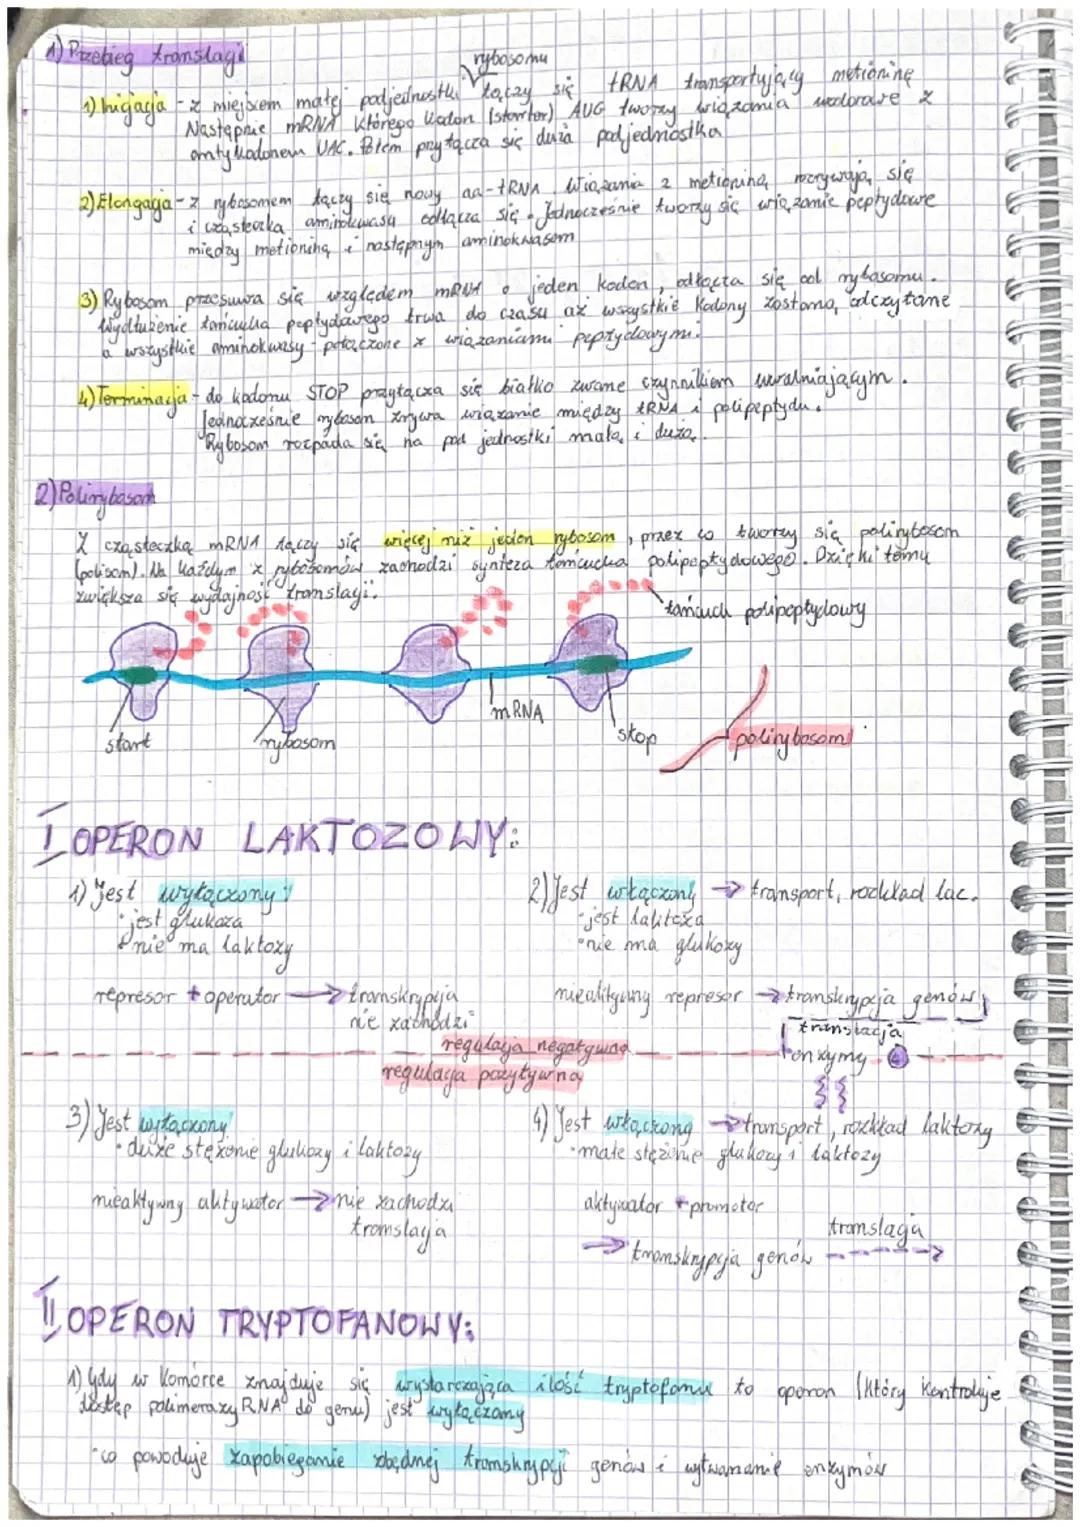 1) Przebieg translacji
rybosomu
1) Inicjacja - z miejscem małej podjednostki łączy się tRNA transportujący metioninę
Następnie mRNA którego kodon (starter) AUG tworzy wiązania wodorowe z
antykodonem UAC. Potem przyłącza się duża podjednostka
2) Elongacja - z rybosomem łączy się nowy aa-tRNA. Wiązania z metioniną rozrywają się
i cząsteczka aminokwasu odłącza się. Jednocześnie tworzy się wiązanie peptydowe
między metioniną i następnym aminokwasem
3) Rybosom przesuwa się względem mRNA o jeden kodon, odłącza się od rybosomu.
Wydłużenie łańcucha peptydowego trwa do czasu aż wszystkie kodony zostaną odczytane
a wszystkie aminokwasy - połączone z wiązaniami peptydowymi.
4) Terminacja - do kodonu STOP przyłącza się białko zwane czynnikiem uwalniającym.
Jednocześnie rybosom zrywa wiązanie między tRNA i polipeptydu.
Rybosom rozpada się na pod jednostki małą i dużą.
2) Polirybosom
Z cząsteczką mRNA łączy się więcej niż jeden rybosom, przez co tworzy się polirybosom
(polisom). Na każdym z rybosomów zachodzi synteza łańcucha polipeptydowego. Dzięki temu
zwiększa się wydajność translacji.
łańcuch polipeptydowy
mRNA
start
rybosom
stop
polirybosom
I OPERON LAKTOZOWY:
1) Jest wyłączony:
• jest glukoza
• nie ma laktozy
represor + operator → transkrypcja
nie zachodzi
2) Jest włączony → transport, rozkład lac.
• jest laktoza
• nie ma glukozy
nieaktywny represor → transkrypcja genów
translacja
enzymy
regulacja negatywna
regulacja pozytywna
3) Jest wyłączony
• duże stężenie glukozy i laktozy
nieaktywny aktywator → nie zachodzi
translacja
4) Jest włączony → transport, rozkład laktozy
• małe stężenie glukozy i laktozy
aktywator + promotor
translacja
→ transkrypcja genów ---->
II OPERON TRYPTOFANOWY:
1) Gdy w komórce znajduje się wystarczająca ilość tryptofanu to operon (który kontroluje
dostęp polimerazy RNA do genu) jest wyłączony
• co powoduje zapobieganie zbędnej transkrypcji genów i wytwarzanie enzymów